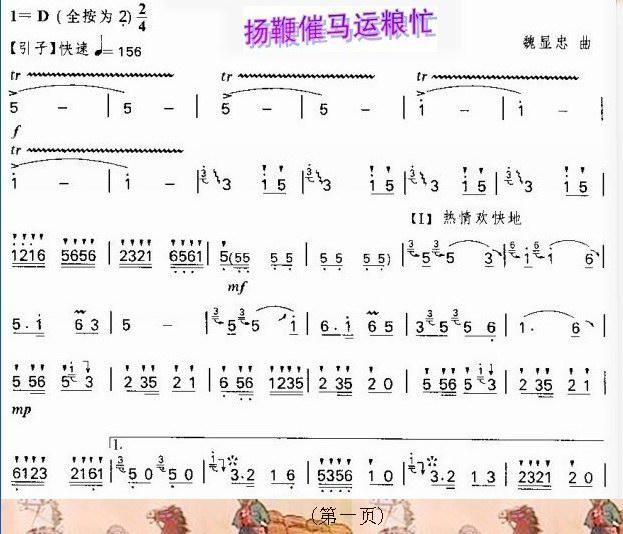 1= D (全按为 2) 2/4
扬鞭催马运粮忙
【引子】快速 ♩= 156
魏显忠 曲
tr tr tr
5 - | 5 - | 5 - | 5 - | i - | i - |
f
tr
i - | i - | 3 i 5 | 3 i 5 | 3 i 5 | 3 i 5 |
【I】热情欢快地
1216 5656 | 2321 6561 | 5(55 5 5 | 5 5 5 5) | 5 5 3 | i 1 6 |
mf
5. i 6 3 | 5 - | 5 5 i | 6. i 6 5 | 3 5 5 6 | 1. 6 |
5 56 5 3 | 2 35 2 1 | 6 56 1235 | 2 35 2 0 | 5 56 5 3 | 2 35 2 1 |
mp
1.
6123 2161 | 5 0 5 0 | 3.2 1 6 | 5356 1 0 | 3.2 1 3 | 2321 2 0 |
(第一页)